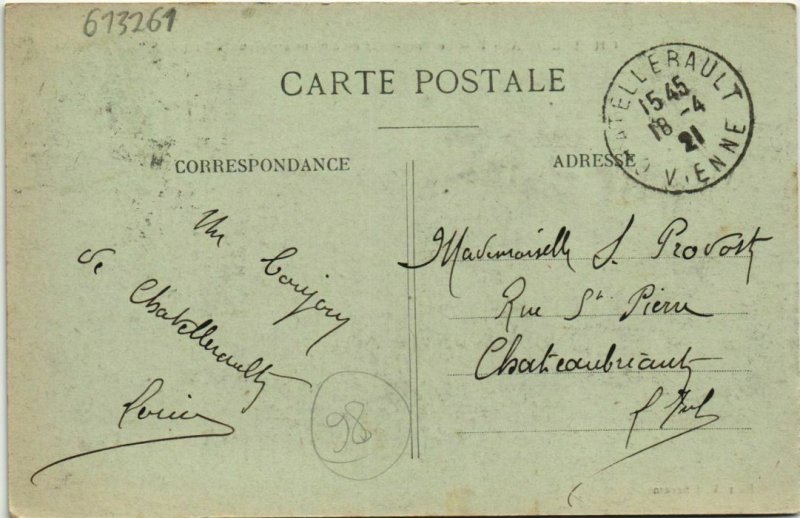 613261
CARTE POSTALE
CORRESPONDANCE
ADRESSE
CHATELLERAULT
15 45
18 -4
21
VIENNE
Un bonjour
de Chatellerault
98
Mademoiselle S. Provost
Rue St Pierre
Chateaubriant